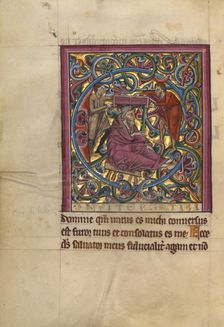 CONFITEBOR TIBI
Domine qm iratus es michi conversus
est furor tuus et consolatus es me Ecce
ds salvator meus fiducialit agam et no